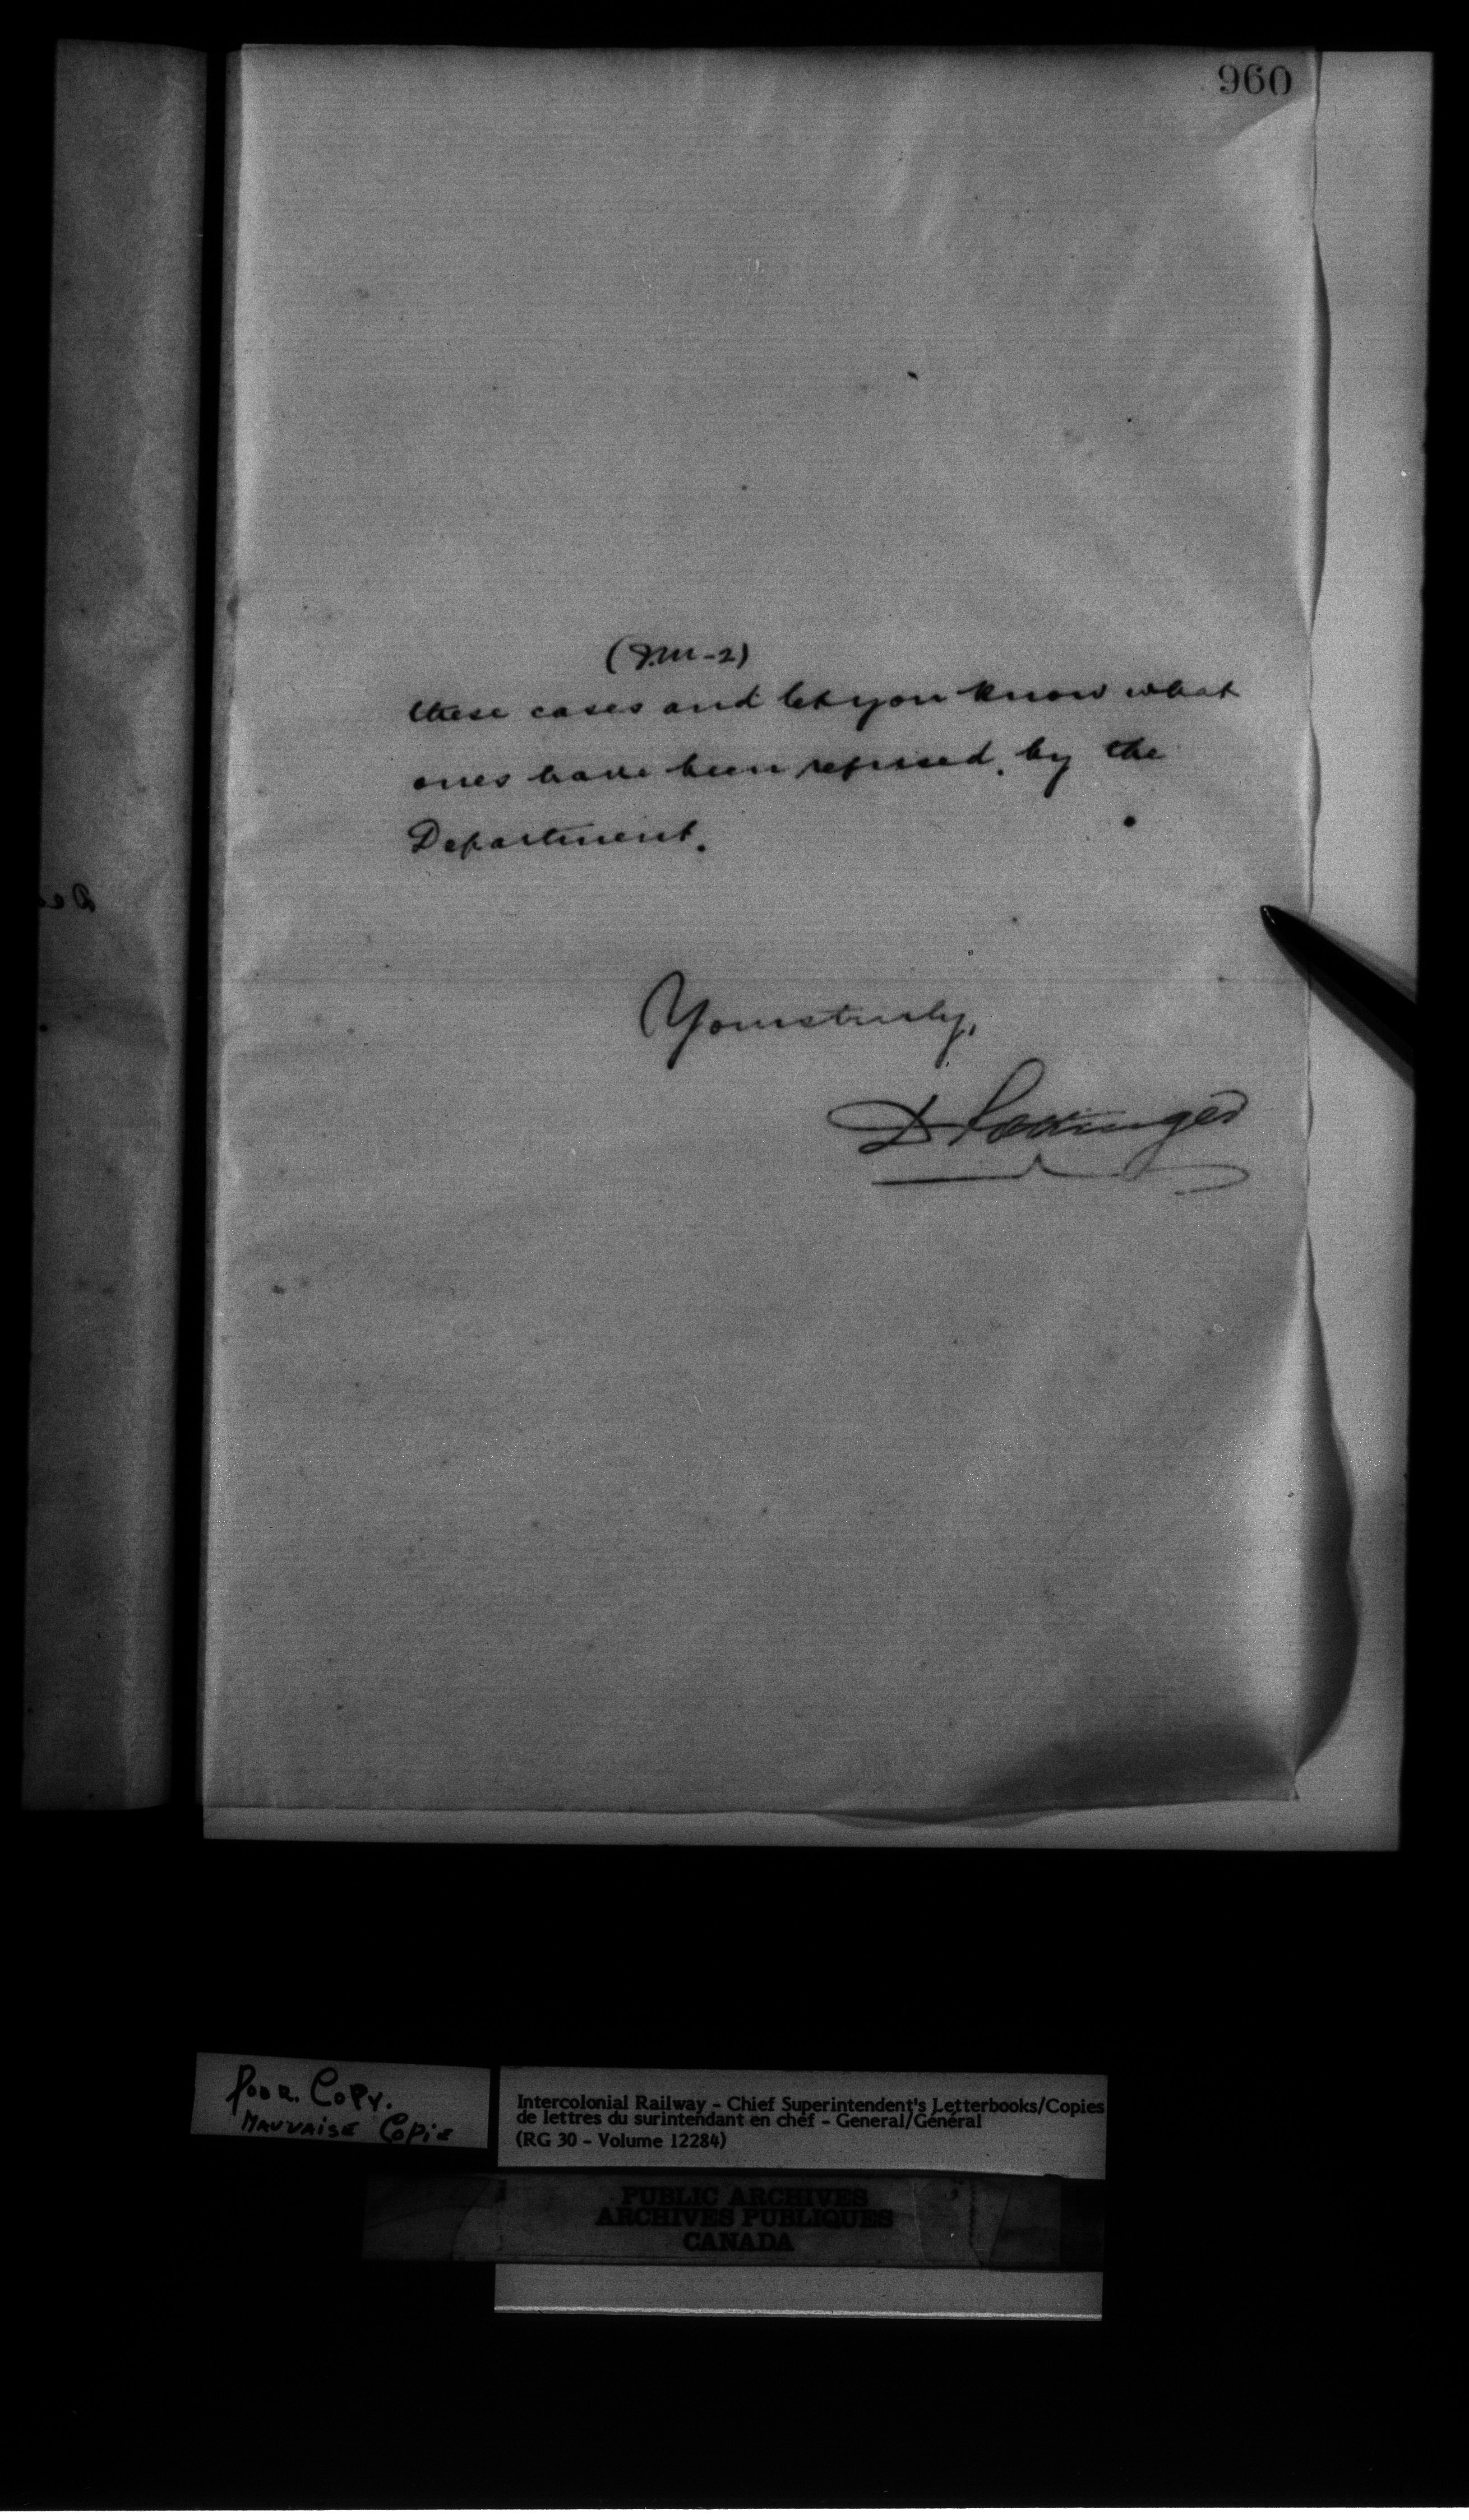 960
(J.M-2)
these cases and let you know what
ones have been refused, by the
Department.
Yours truly,
D Pottinger
Poor. Copy.
Mauvaise Copie
Intercolonial Railway - Chief Superintendent's Letterbooks/Copies
de lettres du surintendant en chef - General/Général
(RG 30 - Volume 12284)
PUBLIC ARCHIVES
ARCHIVES PUBLIQUES
CANADA